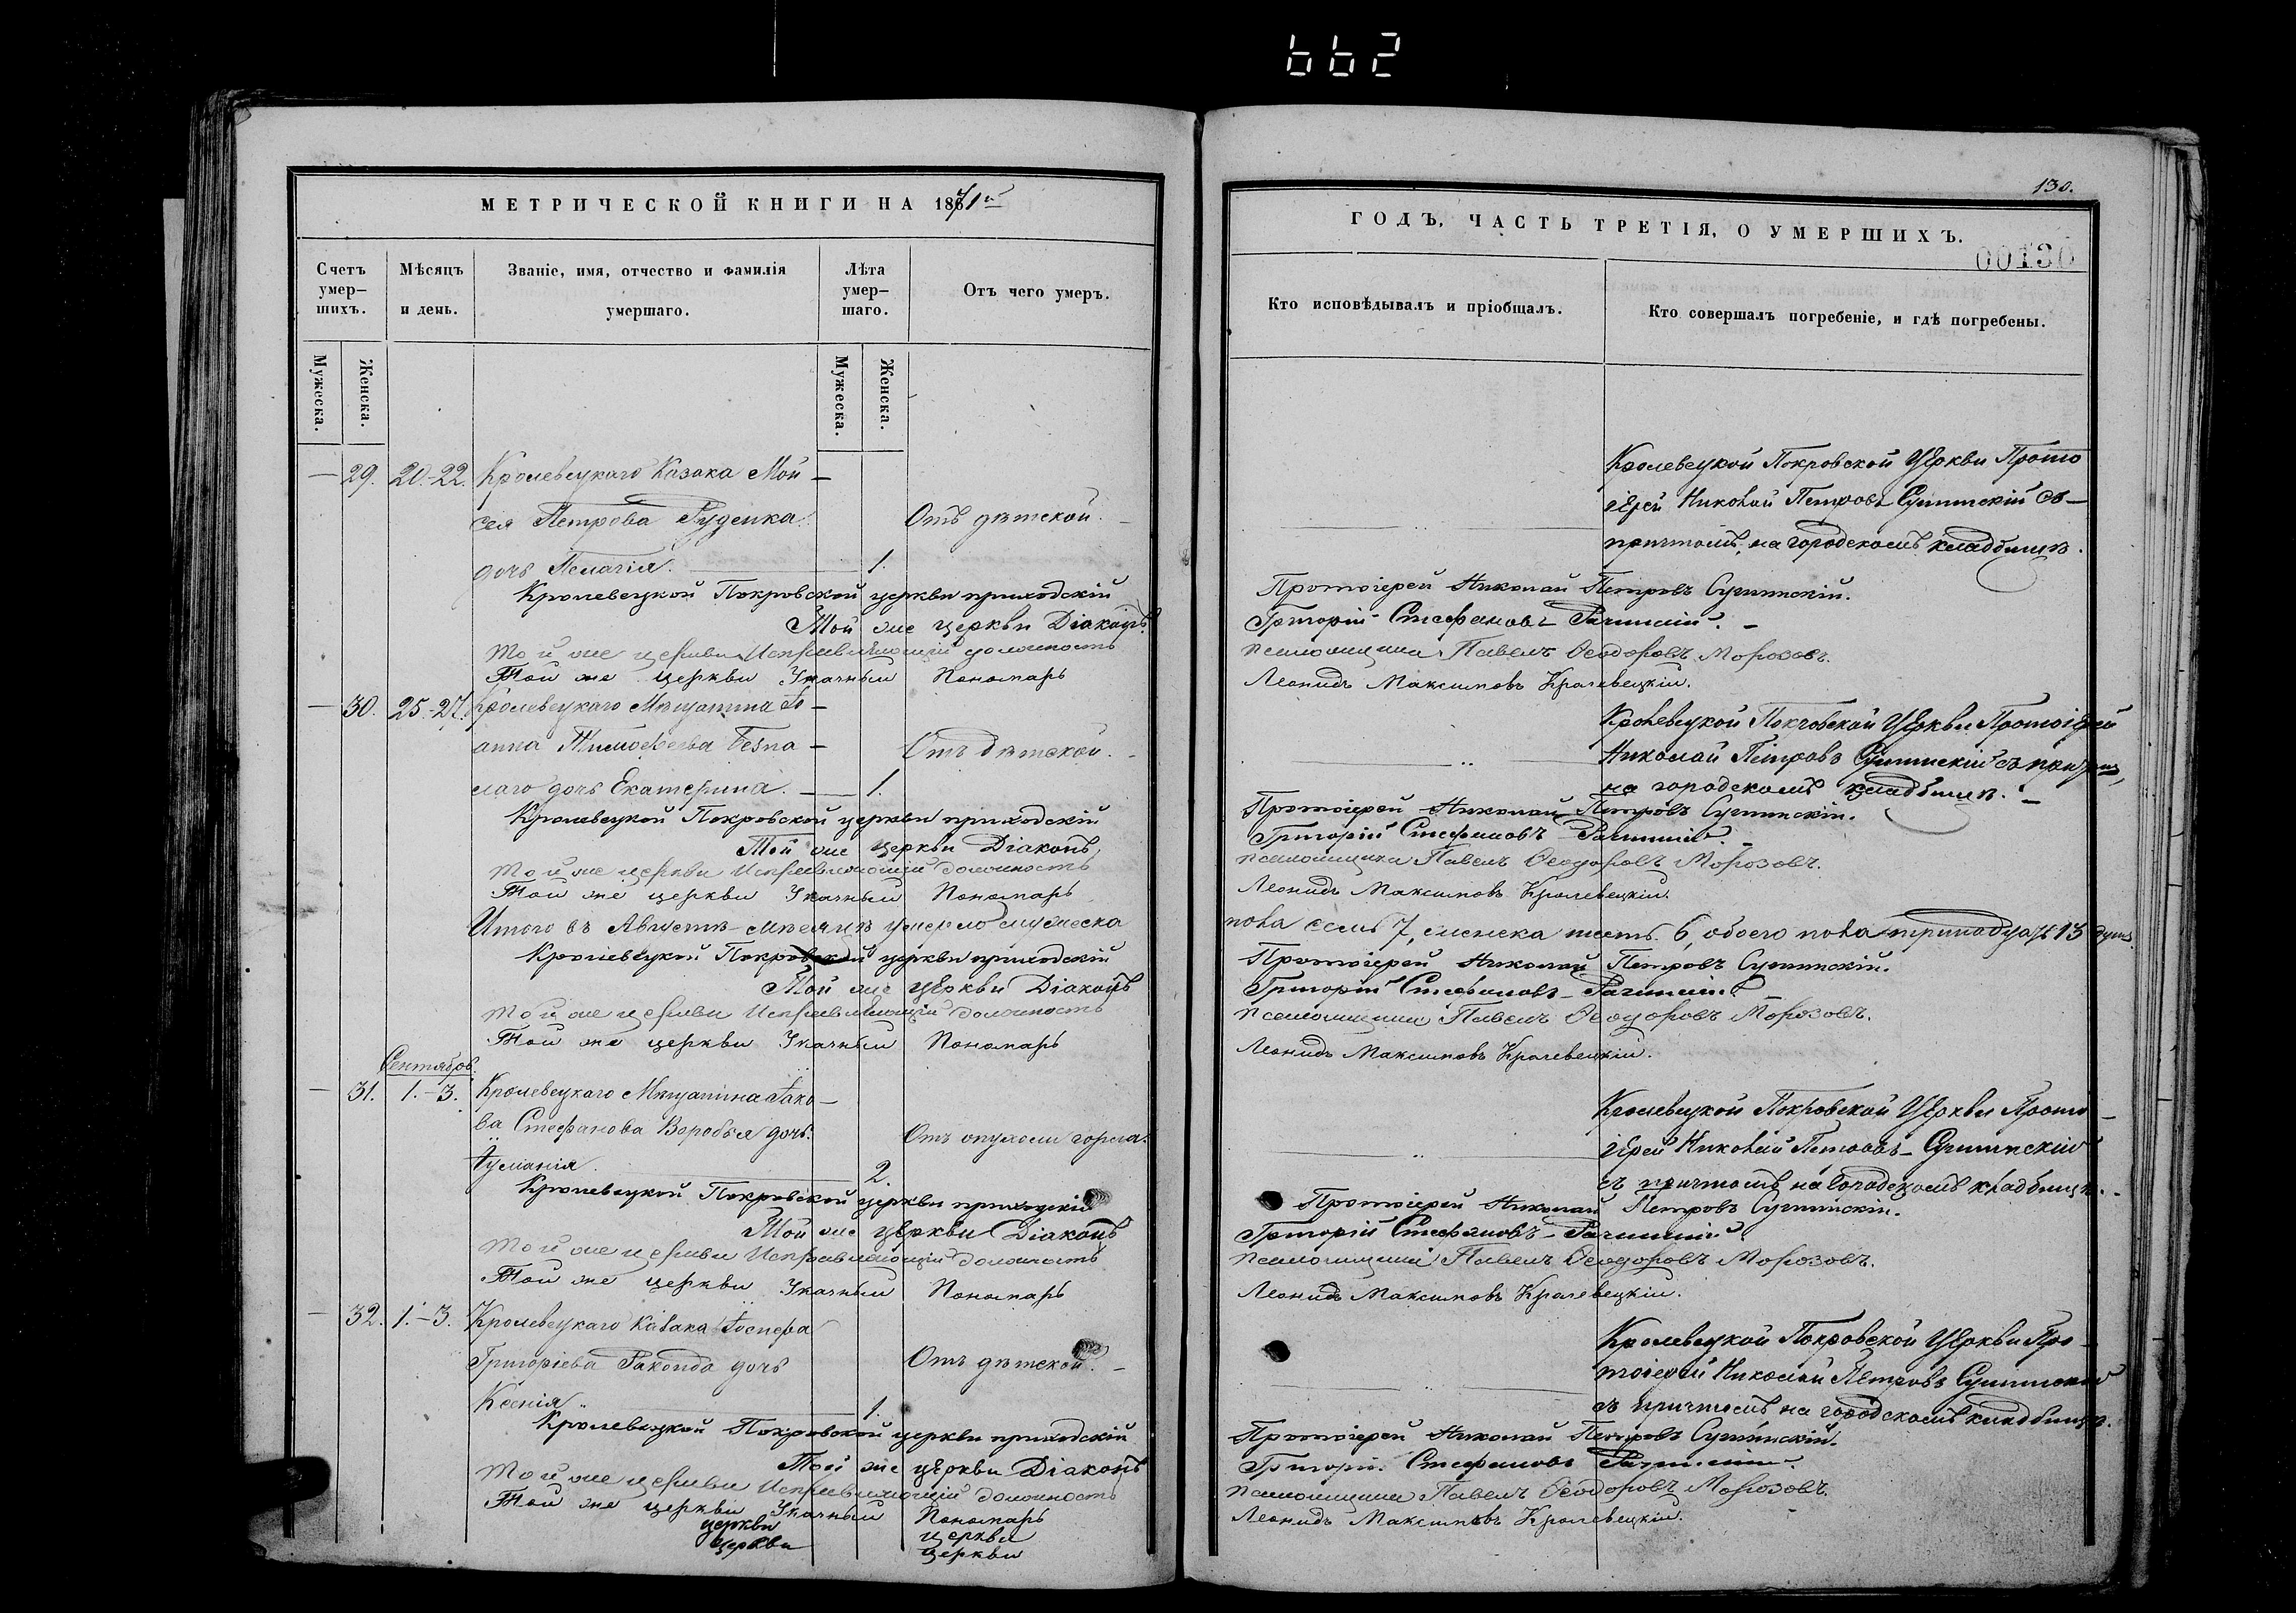 662
МЕТРИЧЕСКОЙ КНИГИ НА 1871й
Счетъ умер–шихъ.
Мѣсяцъ и день.
Званіе, имя, отчество и фамилія умершаго.
Лѣта умер–шаго.
Отъ чего умеръ.
Мужеска.
Женска.
Мужеска.
Женска.
— 29. 20.-22. Кролевецкаго Казака Мой–
сея Петрова Руденка
Отъ дѣтской.
дочь Пелагія. 1.
Кролевецкой Покровской церкви приходскій
Той же церкви Діаконъ
той же церкви Исправляющій должность
Той же церкви Указный Пономарь
— 30. 25.-27. Кролевецкаго Мѣщанина Іо–
анна Тимофеева Безпа–
Отъ дѣтской.
лаго дочь Екатерина. 1.
Кролевецкой Покровской церкви приходскій
Той же церкви Діаконъ
той же церкви Исправляющій должность
Той же церкви Указный Пономарь
Итого въ Августѣ мѣсяцѣ умерло мужеска
Кролевецкой Покровской церкви приходскій
Той же церкви Діаконъ
той же церкви Исправляющій должность
Той же церкви Указный Пономарь
Сентябрь.
— 31. 1.-3. Кролевецкаго Мѣщанина Іако–
ва Стефанова Воробья дочь
Отъ опухоли горла.
Іуліанія 2.
Кролевецкой Покровской церкви приходскій
Той же церкви Діаконъ
той же церкви Исправляющій должность
Той же церкви Указный Пономарь
— 32. 1.-3. Кролевецкаго Казака Іосифа
Григоріева дочь
Отъ дѣтской.
Ксенія 1.
Кролевецкой Покровской церкви приходскій
Той же церкви Діаконъ
той же церкви Исправляющій должность
Той же церкви Указный Пономарь
церкви церкви
церкви церкви
130.
ГОДЪ, ЧАСТЬ ТРЕТІЯ, О УМЕРШИХЪ.
00130
Кто исповѣдывалъ и пріобщалъ.
Кто совершалъ погребеніе, и гдѣ погребены.
Кролевецкой Покровской Церкви Прото
іерей Николай Петровъ Сулимскій съ
причтомъ, на городскомъ кладбищѣ.
Протоіерей Николай Петровъ Сулимскій.
Григорій Стефановъ
псаломщика Павелъ Ѳеодоровъ Морозовъ.
Леонидъ Максимовъ Кролевецкій.
Кролевецкой Покровской Церкви Протоіерей
Николай Петровъ Сулимскій съ причтомъ,
на городскомъ кладбищѣ.
Протоіерей Николай Петровъ Сулимскій.
Григорій Стефановъ
псаломщика Павелъ Ѳеодоровъ Морозовъ.
Леонидъ Максимовъ Кролевецкій.
пола семь 7, женска шесть 6, обоего пола тринадцать 13 душъ.
Протоіерей Николай Петровъ Сулимскій.
Григорій Стефановъ
псаломщика Павелъ Ѳеодоровъ Морозовъ.
Леонидъ Максимовъ Кролевецкій.
Кролевецкой Покровской Церкви Прото–
іерей Николай Петровъ Сулимскій
съ причтомъ, на городскомъ кладбищѣ.
Протоіерей Николай Петровъ Сулимскій.
Григорій Стефановъ
псаломщика Павелъ Ѳеодоровъ Морозовъ.
Леонидъ Максимовъ Кролевецкій.
Кролевецкой Покровской Церкви Про–
тоіерей Николай Петровъ Сулимскій
съ причтомъ на городскомъ кладбищѣ.
Протоіерей Николай Петровъ Сулимскій.
Григорій Стефановъ
псаломщика Павелъ Ѳеодоровъ Морозовъ.
Леонидъ Максимовъ Кролевецкій.